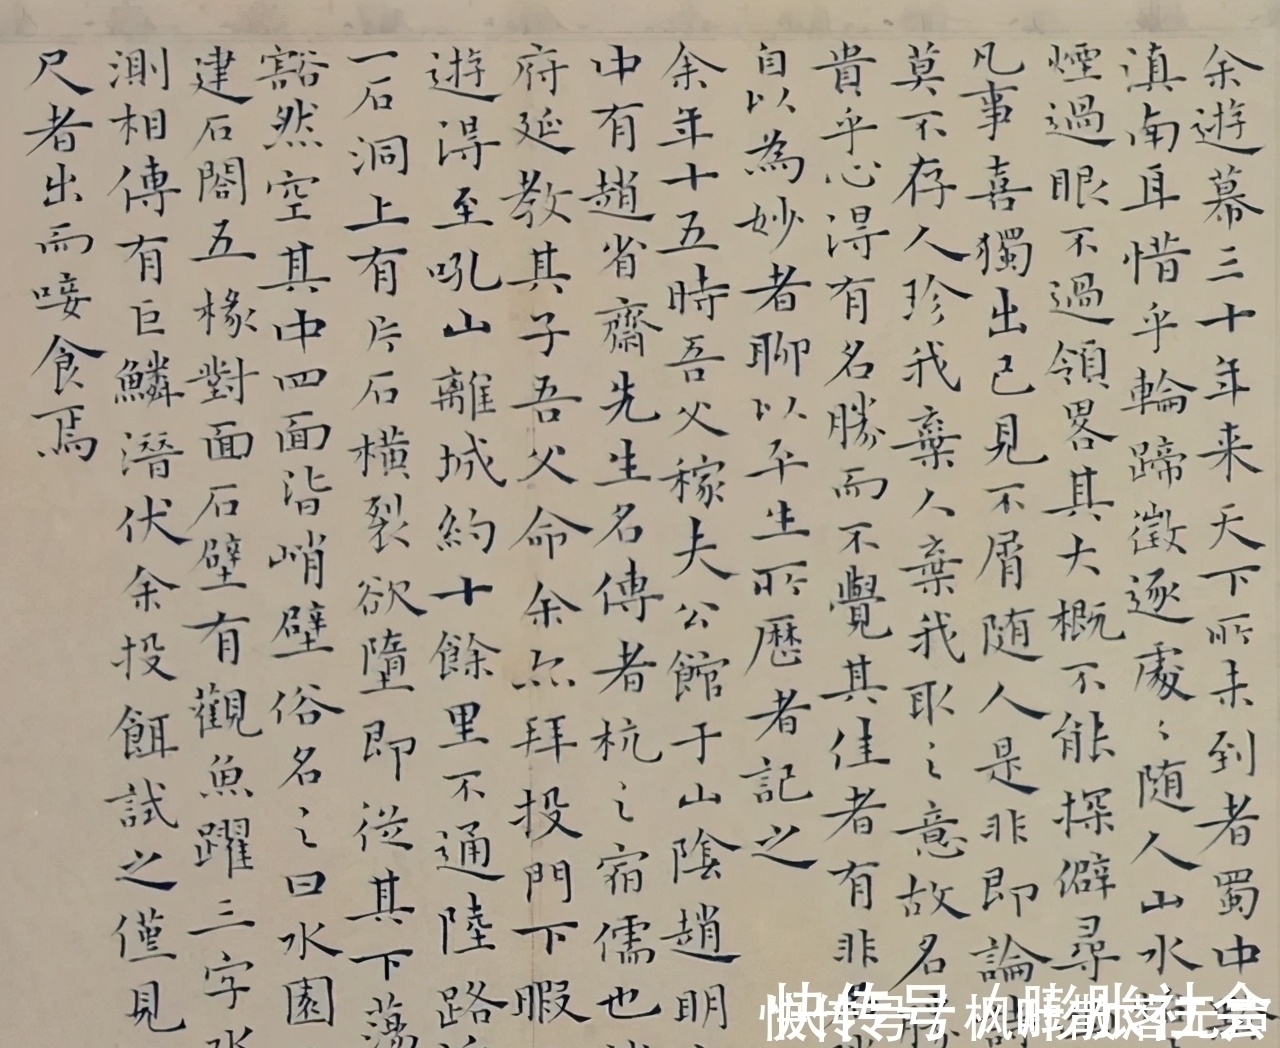 余遊幕三十年来天下所未到者蜀中
滇南耳惜乎輪蹄徵逐處〻随人山水
煙過眼不過領畧其大概不能探僻尋
凡事喜獨出己見不屑随人是非即論
莫不存人珍我棄人棄我取〻意故名
貴乎心淂有名勝而不覺其佳者有非
自以為妙者聊以平生所歷者記之
余年十五時吾父稼夫公館于山陰趙明
中有趙省齋先生名傳者杭〻宿儒也
府延教其子吾父命余亦拜投門下暇
遊淂至吼山離城約十餘里不通陸路
一石洞上有片石横裂欲墮即從其下蕩
豁然空其中四面皆峭壁俗名〻曰水園
建石閣五椽對面石壁有觀魚躍三字水
測相傳有巨鱗潛伏余投餌試之僅見
尺者出而唼食焉
快传号